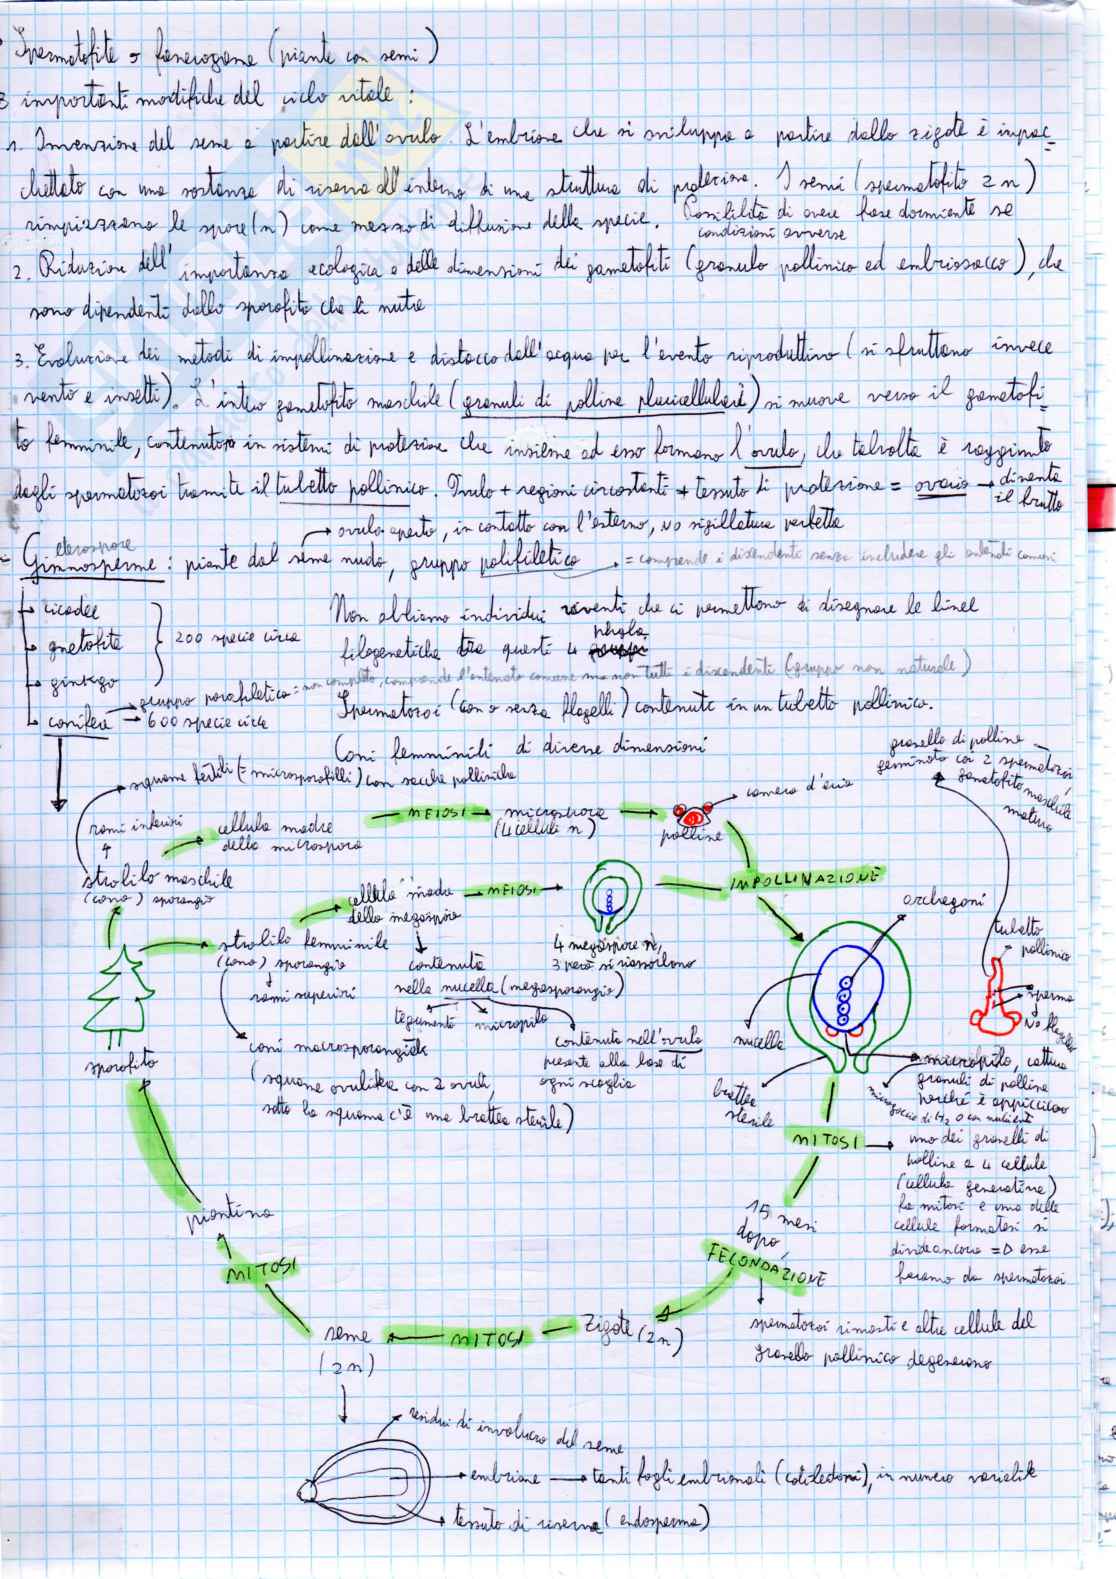 Spermatofite o fanerogame (piante con semi)
3 importanti modifiche del ciclo vitale:
1. Invenzione del seme a partire dall'ovulo. L'embrione che si sviluppa a partire dallo zigote è impac=
chettato con una sostanza di riserva all'interno di una struttura di protezione. I semi (spermatofito 2n)
rimpiazzano le spore (n) come mezzo di diffusione della specie. Possibilità di avere fase dormiente se
condizioni avverse
2. Riduzione dell'importanza ecologica e delle dimensioni dei gametofiti (granulo pollinico ed embriosacco), che
sono dipendenti dallo sporofito che li nutre
3. Evoluzione dei metodi di impollinazione e distacco dall'acqua per l'evento riproduttivo (si sfruttano invece
vento e insetti). L'intero gametofito maschile (granuli di polline pluricellulare) si muove verso il gametofi=
to femminile, contenuto in sistemi di protezione che insieme ad esso formano l'ovulo, che talvolta è raggiunto
dagli spermatozoi tramite il tubetto pollinico. Ovulo + regioni circostanti + tessuto di protezione = ovario → diventa
il frutto
→ ovulo aperto, in contatto con l'esterno, no sigillatura perfetta
eterospore
- Gimnosperme: piante dal seme nudo, gruppo polifiletico → = comprende i discendenti senza includere gli antenati comuni
→ cicadee
→ gnetofite
→ ginkgo
200 specie circa
→ conifere → 600 specie circa
gruppo parafiletico = non completo, comprende l'antenato comune ma non tutti i discendenti (gruppo non naturale)
Non abbiamo individui viventi che ci permettono di disegnare le linee
filogenetiche tra questi 4 phyla.
Spermatozoi (con o senza flagelli) contenuti in un tubetto pollinico.
Coni femminili di diverse dimensioni
squame fertili (= microsporofilli) con sacche polliniche
rami inferiori
strobilo maschile
(cono) sporangio
cellula madre
della microspora
MEIOSI
microspora
(4 cellule n)
polline
camera d'aria
IMPOLLINAZIONE
granello di polline
germinato con 2 spermatozoi,
gametofito maschile
maturo
strobilo femminile
(cono) sporangio
rami superiori
coni macrosporangiali
(squame ovulifere con 2 ovuli,
sotto la squama c'è una brattea sterile)
cellula madre
della megaspora
MEIOSI
4 megaspore n,
3 però si riassorbono
contenuta
nella nucella (megasporangio)
tegumento
micropilo
contenuta nell'ovulo
presente alla base di
ogni scaglia
archegoni
tubetto
pollinico
sperma
no flagelli
nucella
brattea
sterile
micropilo, cattura
granuli di polline
perché è appiccicoso
microgoccia di H2O con nutrienti
MITOSI → uno dei granelli di
polline a 4 cellule
(cellula generativa)
fa mitosi e una delle
cellule formatesi si
divide ancora => esse
faranno da spermatozoi
15 mesi
dopo,
FECONDAZIONE
spermatozoi rimasti e altre cellule del
granello pollinico degenerano
Zigote (2n)
MITOSI
seme
(2n)
MITOSI
piantina
sporofito
residui di involucro del seme
embrione → tanti fogli embrionali (cotiledoni), in numero variabile
tessuto di riserva (endosperma)